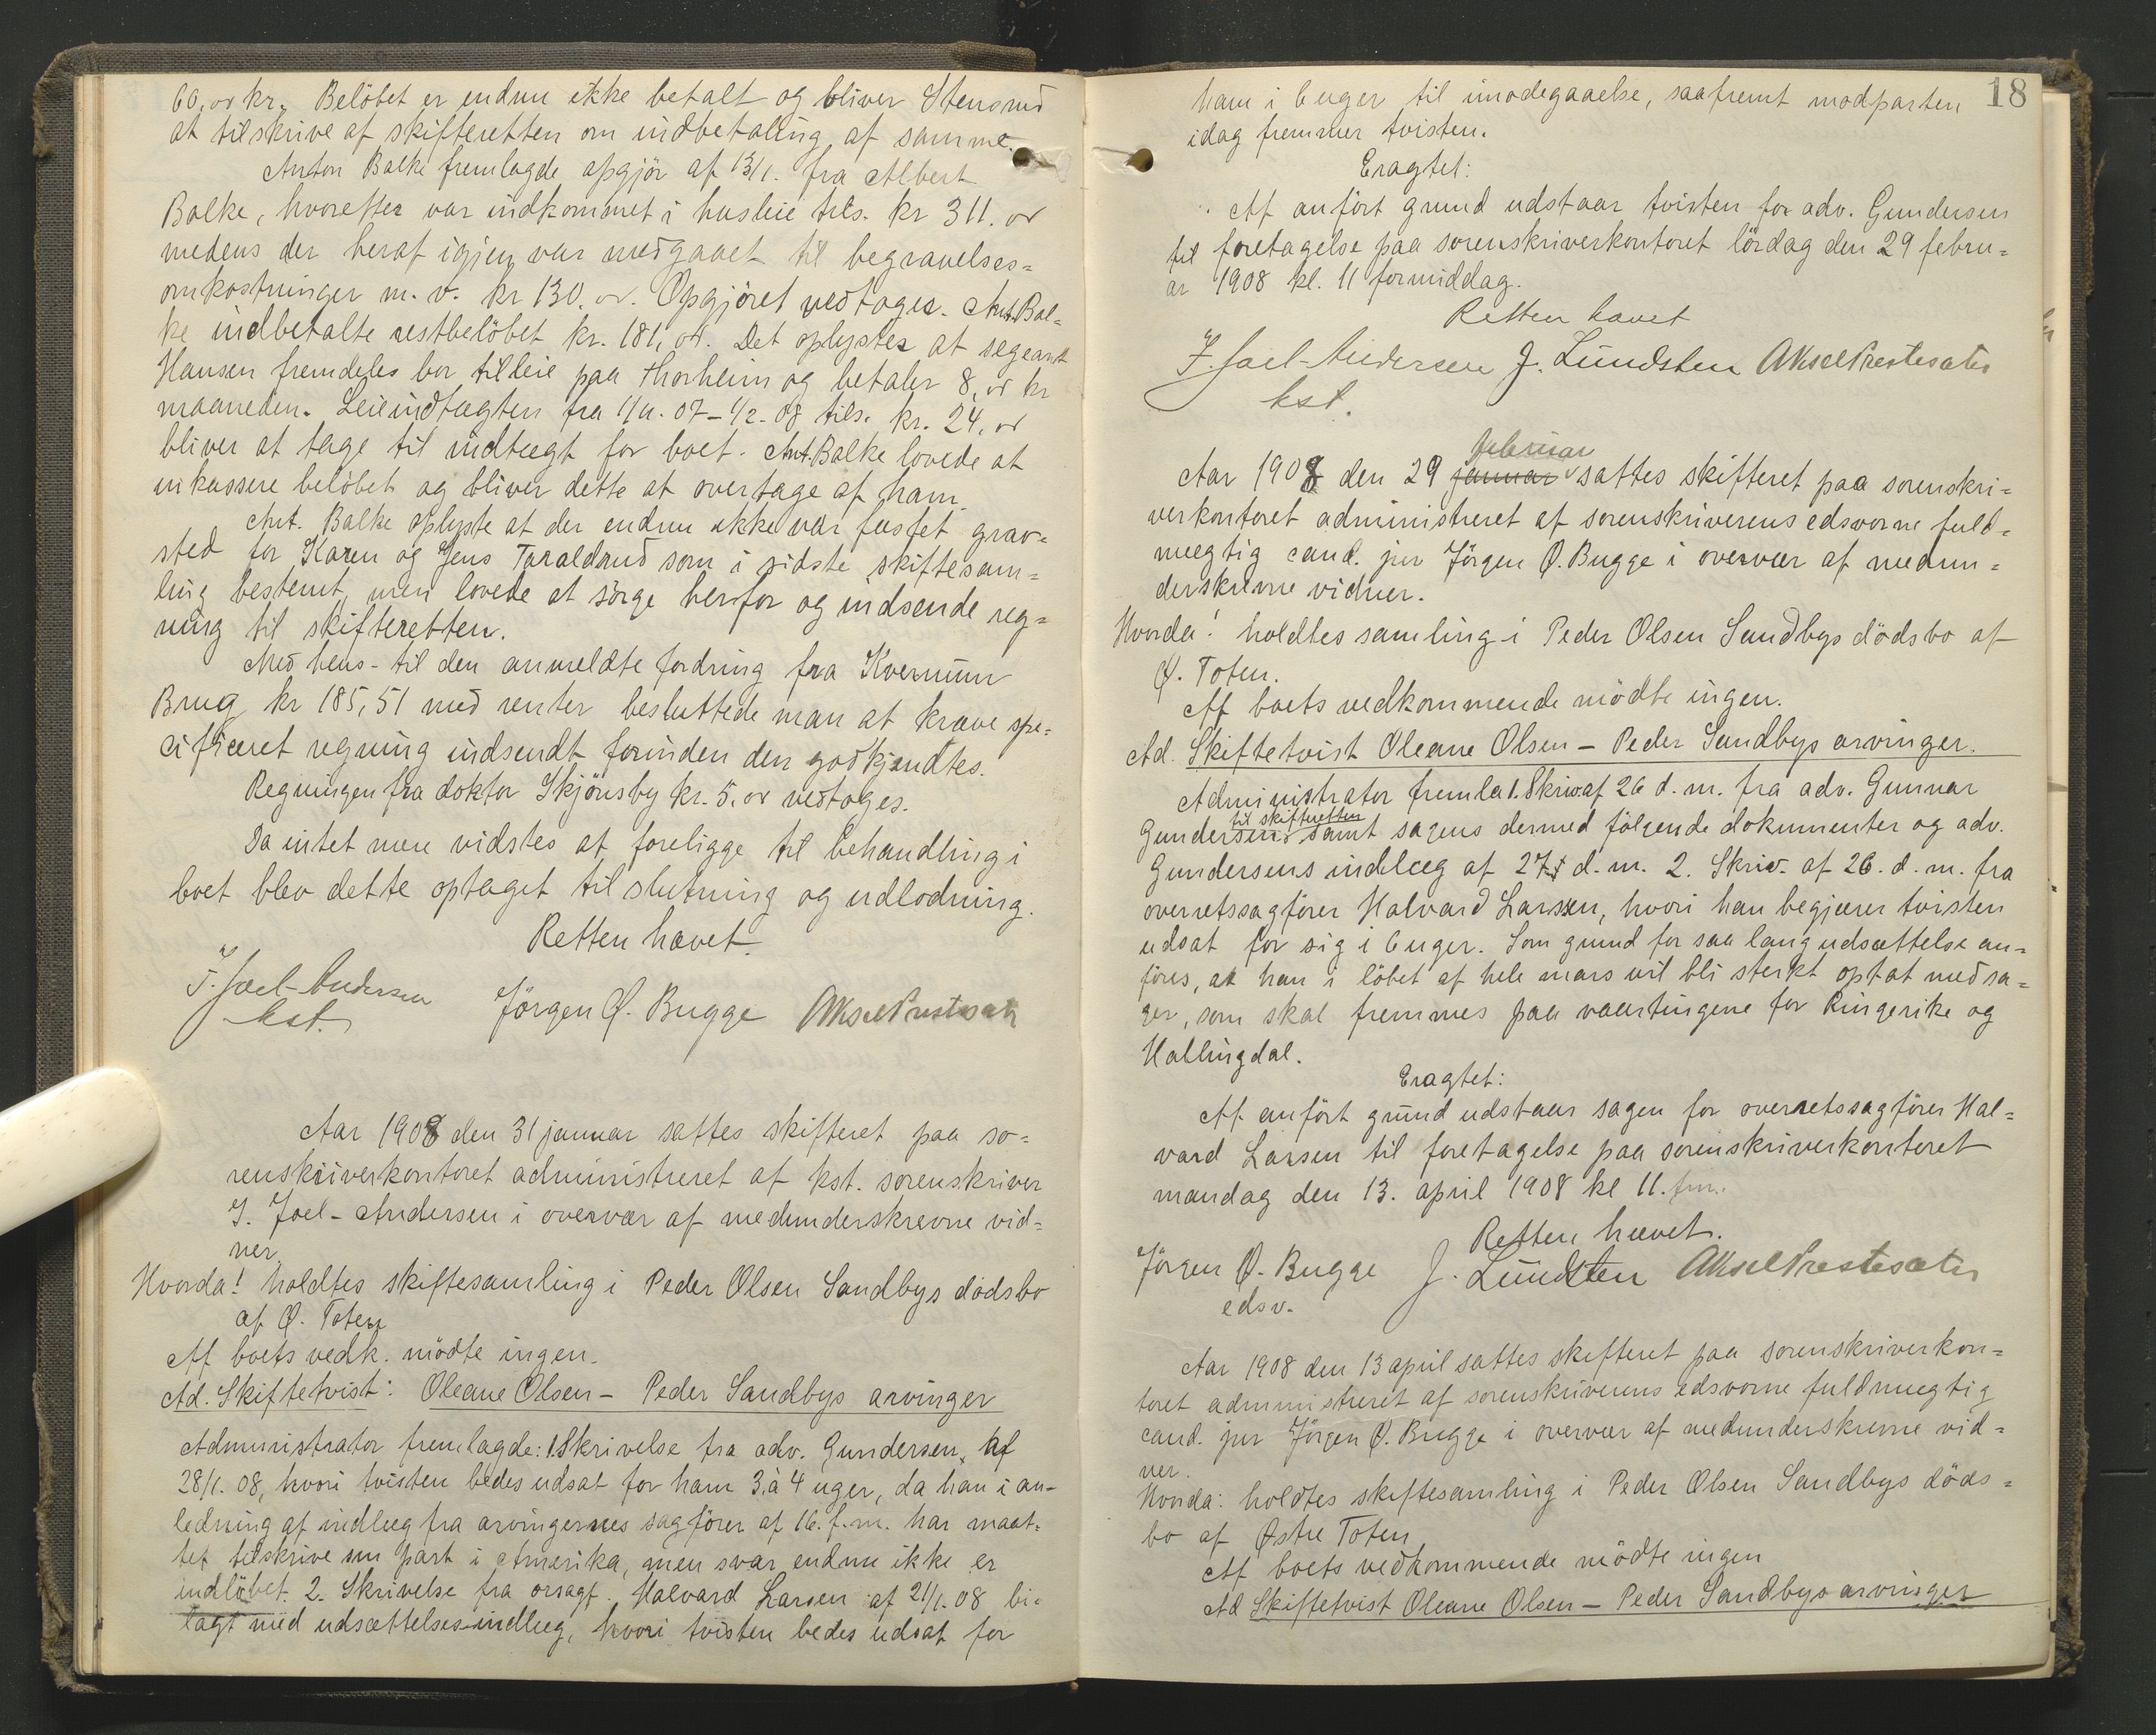 60, or kr. Belöbet er endnu ikke betalt og bliver Stensrud
at tilskrive af skifteretten om indbetaling af samme.
Anton Balke fremlagde opgjör af 13/1. fra Albert
Balke, hvorefter var indkommet i husleie tils. kr 311. or
medens der heraf igjen var medgaaet til begravelses=
omkostninger m. v. kr 130. or. Opgjöret vedtoges. Ant. Bal=
ke indbetalte restbelöbet kr. 181, or. Det oplystes at segeant
Hansen fremdeles bor tilleie paa Thorheim og betaler 8, or kr
maaneden. Leieindtægten fra 1/11. 07 - 1/2. 08 tils. kr. 24, or
bliver at tage til indtægt for boet. Ant. Balke lovede at
inkassere belöbet og bliver dette at overtage af ham.
Ant. Balke oplyste at der endnu ikke var fæstet grav=
sted for Karen og Jens Taraldsrud som i sidste skiftesam=
ling bestemt, men lovede at sörge herfor og indsende reg=
ning til skifteretten.
Med hens. til den anmeldte fordring fra Kvernum
Brug kr 185,51 med renter besluttede man at kræve spe=
cificeret regning indsendt forinden den godkjendtes.
Regningen fra doktor Skjönsby kr. 5. or vedtoges.
Da intet mere vidstes at foreligge til behandling i
boet blev dette optaget til slutning og udlodning.
Retten hævet.
J. Joel-Andersen Jörgen Ø. Bugge Aksel Prestesæter
kst.
Aar 1908 den 31 januar sattes skifteret paa so=
renskriverkontoret administreret af kst. sorenskriver
J. Joel-Andersen i overvær af medunderskrevne vid=
ner.
Hvorda! holdtes skiftesamling i Peder Olsen Sandbys dödsbo
af Ø. Toten
Af boets vedk. mödte ingen.
Ad. Skiftetvist: Oleane Olsen - Peder Sandbys arvinger
Administrator fremlagde: 1 Skrivelse fra adv. Gundersen, af
28/1. 08, hvori tvisten bedes udsat for ham 3 à 4 uger, da han i an-
ledning af indlæg fra arvingernes sagförer af 16. f. m. har maat=
tet tilskrive sin part i Amerika, men svar endnu ikke er
indlöbet. 2. Skrivelse fra orsagf. Halvard Larsen af 21/1. 08 bi=
lagt med udsættelsesindlæg, hvori tvisten bedes udsat for
18
ham i 6 uger til imødegaaelse, saafremt modparten
idag fremmer tvisten.
Eragtet:
Af anfört grund udstaar tvisten for adv. Gundersen
til foretagelse paa sorenskriverkontoret lördag den 29 febru=
ar 1908 kl. 11 formiddag.
Retten hævet
J. Joel-Andersen J. Lundsten Aksel Prestesæter
kst.
februar
Aar 1908 den 29 januar sattes skifteret paa sorenskri=
verkontoret administreret af sorenskriverens edsvorne fuld=
mægtig cand. jur Jörgen Ø. Bugge i overvær af medun=
derskrevne vidner.
Hvorda! holdtes samling i Peder Olsen Sandbys dödsbo af
Ø. Toten.
Af boets vedkommende mödte ingen.
Ad. Skiftetvist Oleane Olsen - Peder Sandbys arvinger.
Administrator fremla 1. Skriv. af 26 d. m. fra adv. Gunnar
til skifteretten
Gundersen samt sagens dermed fölgende dokumenter og adv.
Gundersens indlæg af 27. d. m. 2. Skriv. af 26. d. m. fra
overretssagförer Halvard Larssen, hvori han begjærer tvisten
udsat for sig i 6 uger. Som grund for saa lang udsættelse an=
föres, at han i löbet af hele mars vil bli sterkt optat med sa=
ger, som skal fremmes paa vaartingene for Ringerike og
Hallingdal.
Eragtet:
Af anfört grund udstaar sagen for overretssagförer Hal=
vard Larsen til foretagelse paa sorenskriverkontoret
mandag den 13. april 1908 kl 11. fm.
Retten hævet.
Jörgen Ø. Bugge J. Lundsten Aksel Prestesæter
edsv.
Aar 1908 den 13 april sattes skifteret paa sorenskriverkon=
toret administreret af sorenskriverens edsvorne fuldmægtig
cand. jur Jörgen Ø. Bugge i overvær af medunderskrevne vid=
ner.
Hvorda: holdtes skiftesamling i Peder Olsen Sandbys döds=
bo af Østre Toten
Af boets vedkommende mödte ingen
Ad Skiftetvist Oleane Olsen - Peder Sandbys arvinger